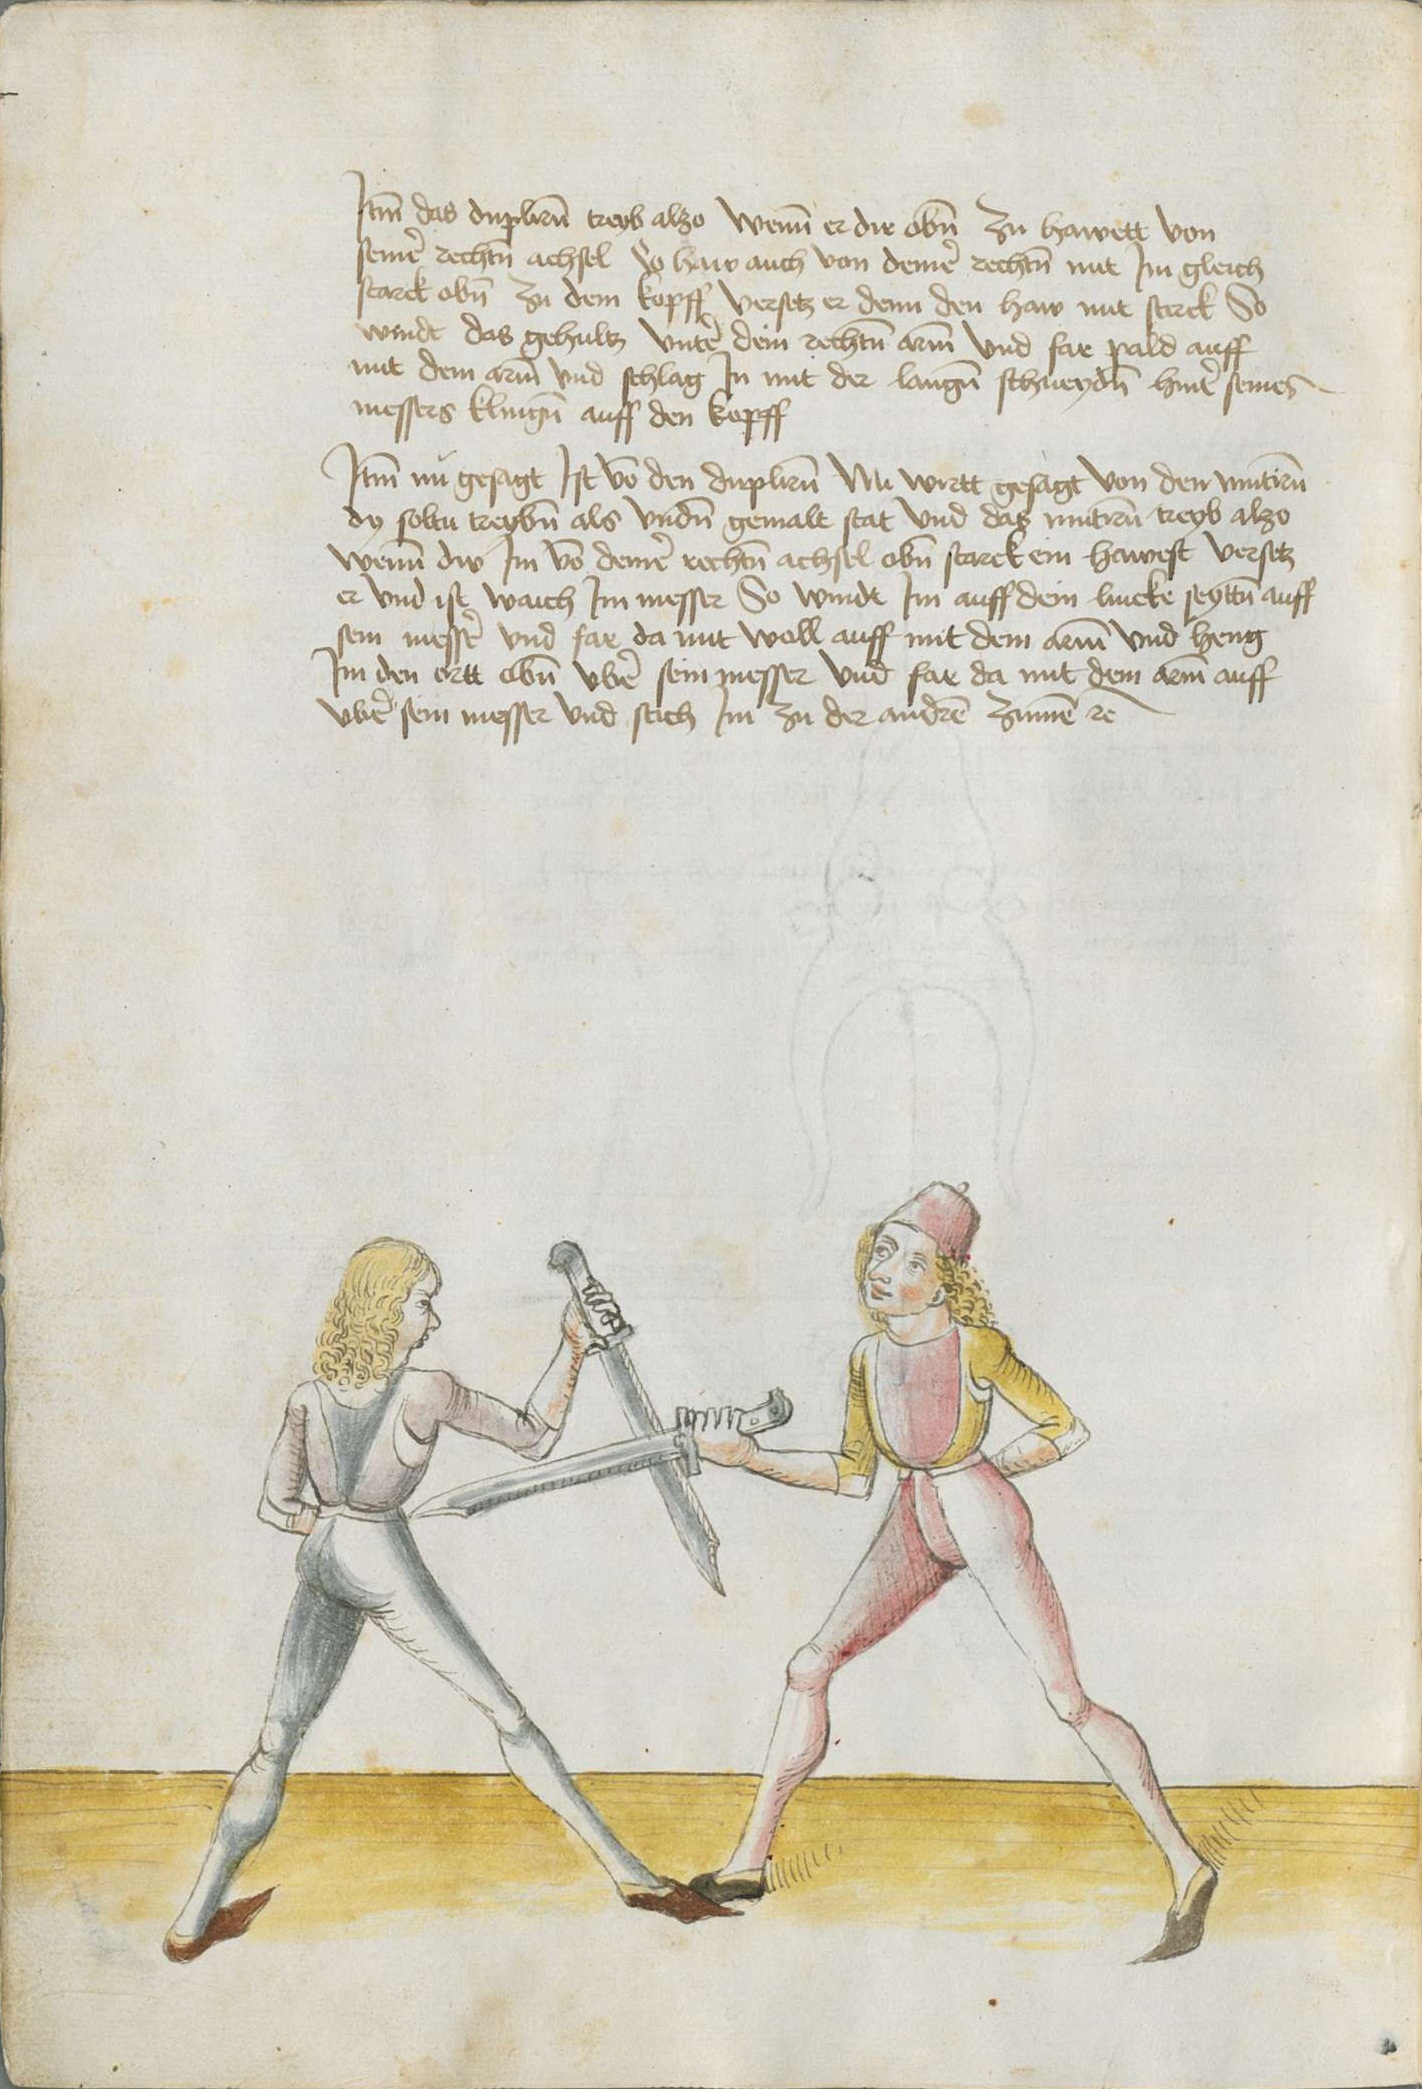 Itm̄ das duplirn̄ treyb alzo Wenn̄ er dir obn̄ zu hawett von
seinē rechtn̄ achsel So haw auch von deinē rechtn̄ mit Im gleich
starck obn̄ zu dem kopff versetz er denn den haw mit sterck So
windt das gehultz vntē dein rechtn̄ arm̄ vnd far pald auff
mit dem arm̄ vnd schlag In mit der langn̄ schneydn̄ hintē seines
messers klingn̄ auff den kopff
Itm̄ nu gesagt Ist vō den duplirn̄ Nu wirtt gesagt von den mutirn̄
dy soltu treybn̄ als vndn̄ gemalt stat vnd das mutirn̄ treyb alzo
wenn̄ dw Im vō deinē rechtn̄ achsel obn̄ starck ein hawest versetz
er vnd ist waich Im messer So windt Im auff dein lincke seyttn̄ auff
sein messē vnd far da mit woll auff mit dem arm̄ vnd heng
Im den ortt obn̄ vbē sein messer vnd far da mit dem arm̄ auff
vbē sein messer vnd stich Im zu der andrē